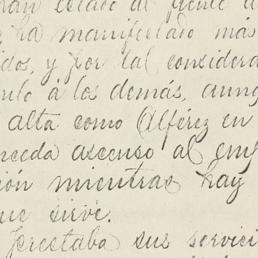 celado al gente a
ha manifestado más
dos, y por tal considera
a los demás, aunq
alta como Alférez en
nceda ascenso al em
ión mientras hay
ue sirve.
Prestaba sus servici